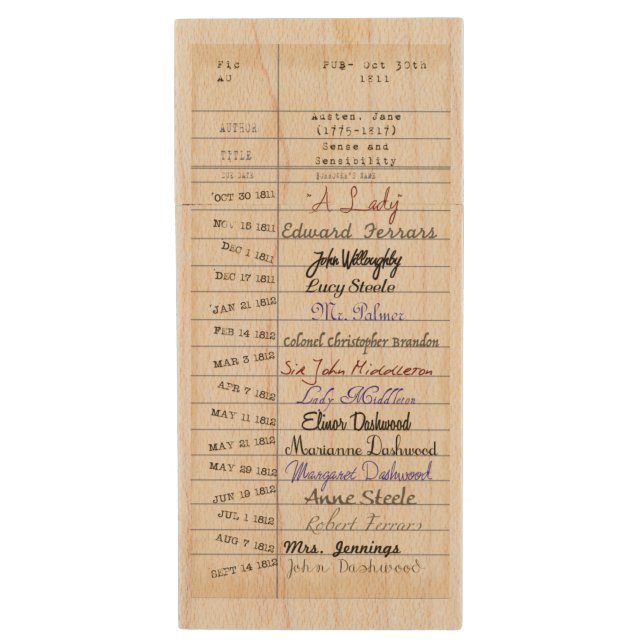 Fic PUB- Oct 30th
AU 1811
Austen, Jane
AUTHOR (1775-1817)
Sense and
TITLE Sensibility
DUE DATE BORROWER'S NAME
OCT 30 1811 "A Lady"
NOV 15 1811 Edward Ferrars
DEC 1 1811 John Willoughby
DEC 17 1811 Lucy Steele
JAN 21 1812 Mr. Palmer
FEB 14 1812 Colonel Christopher Brandon
MAR 3 1812 Sir John Middleton
APR 7 1812 Lady Middleton
MAY 11 1812 Elinor Dashwood
MAY 21 1812 Marianne Dashwood
MAY 29 1812 Margaret Dashwood
JUN 19 1812 Anne Steele
JUL 1 1812 Robert Ferrars
AUG 7 1812 Mrs. Jennings
SEPT 14 1812 John Dashwood